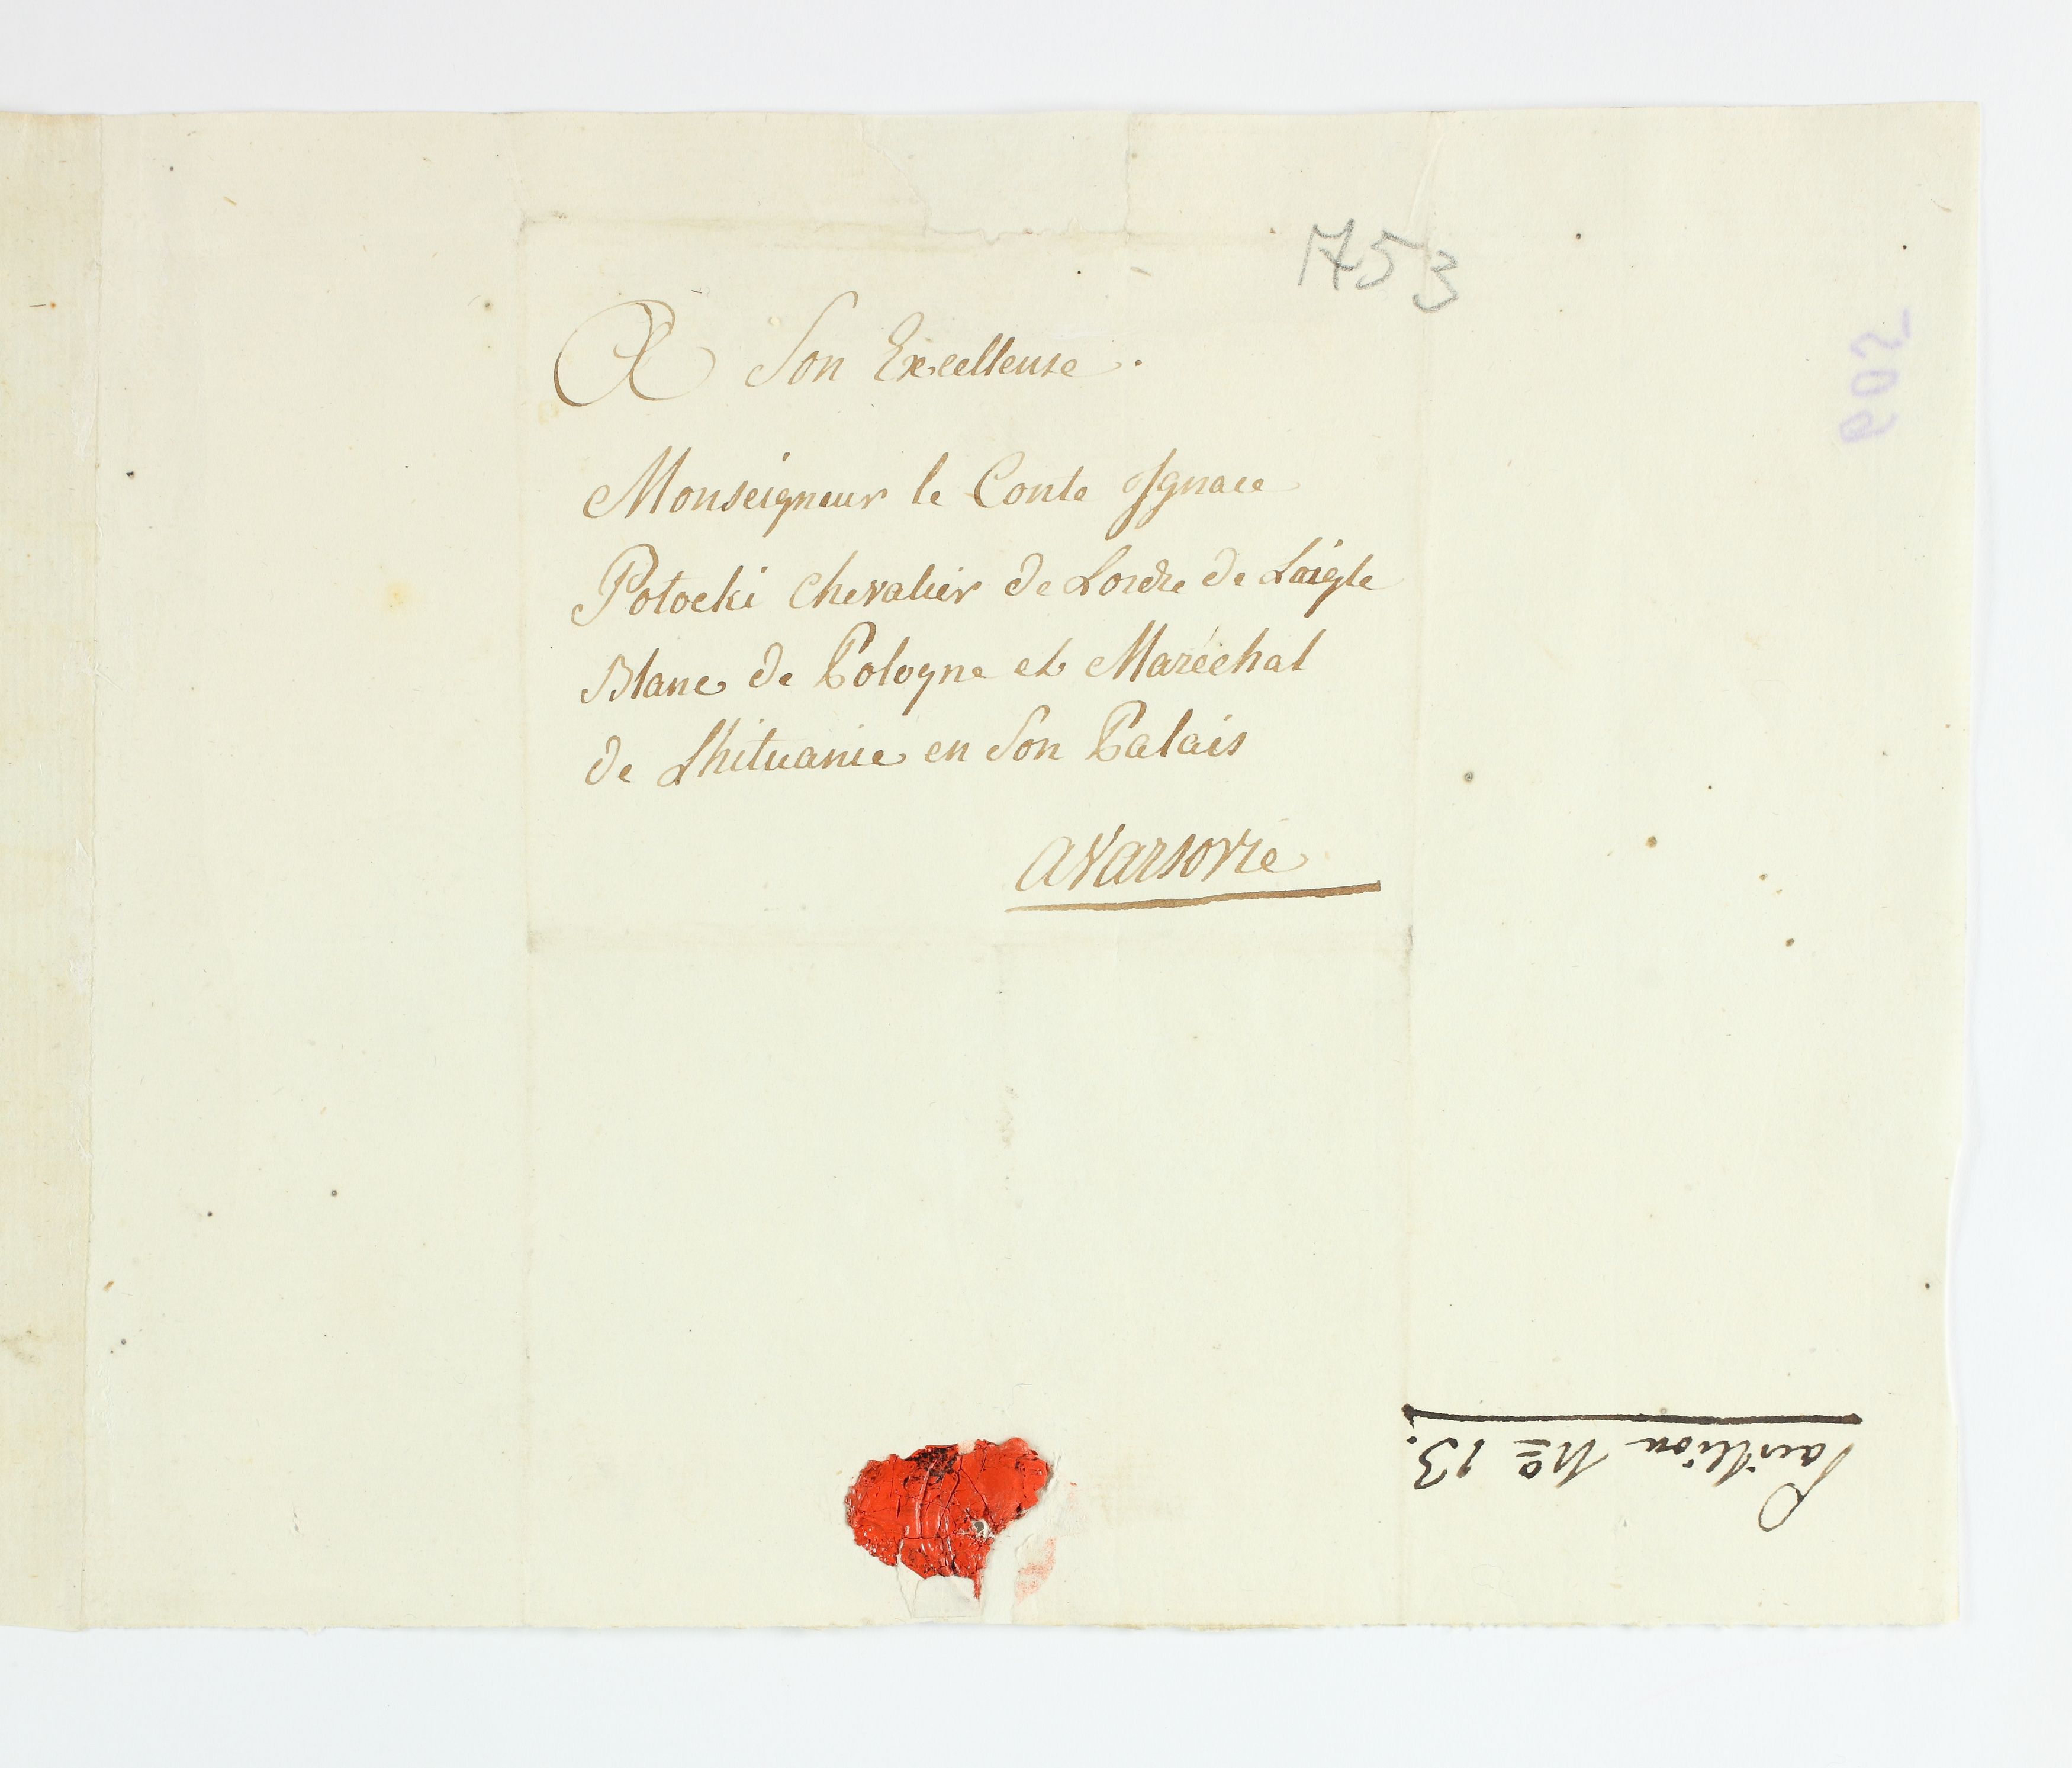 1753
A Son Excellense.
Monseigneur le Conte Ignace
Potocki Chevalier de Lordre de Laigle
Blanc de Pologne et Maréchal
de Lhituanie en Son Palais
a Varsovie
Pavillion No 13.